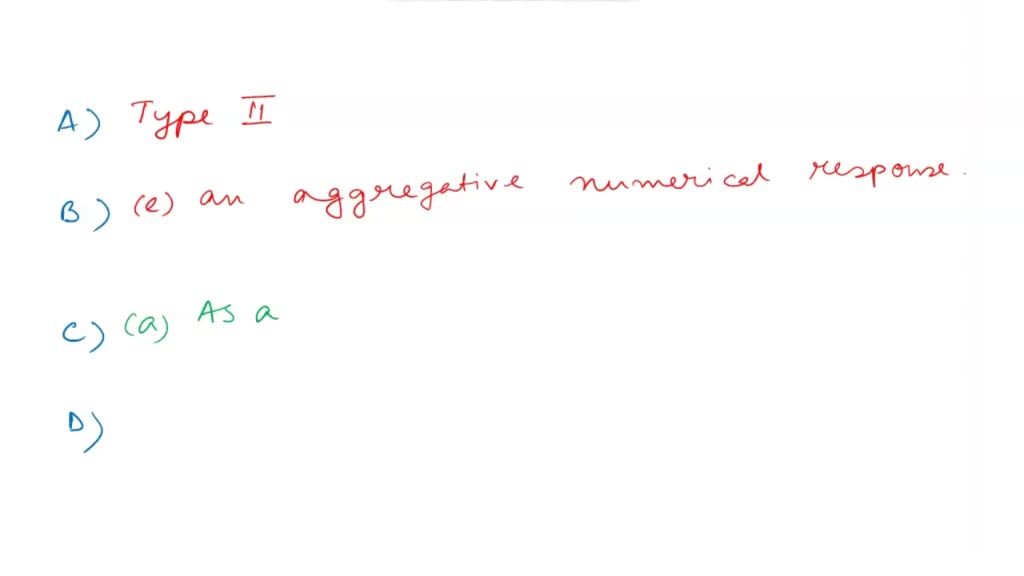 A) Type II
B) (e) an aggregative numerical response.
C) (a) As a
D)